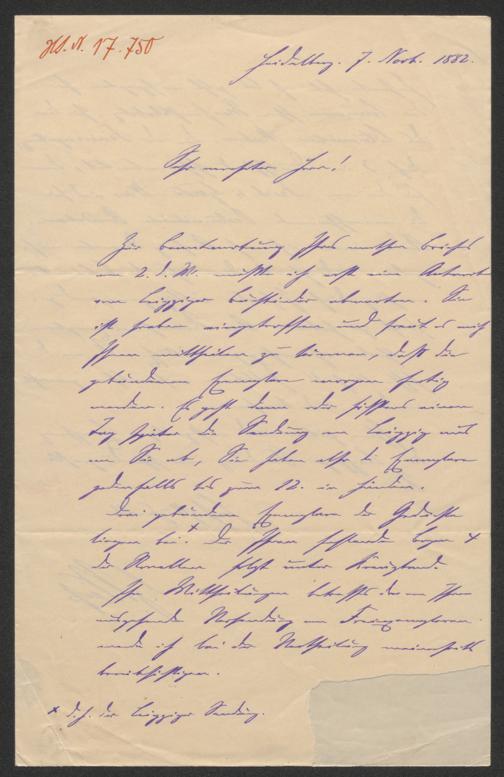 HS. N. 17.750
Heidelberg. 7. Novb. 1882.
Sehr verehrter Herr!
Zur Beantwortung Ihres werthen Briefes
vom 2. d. M. mußte ich erst eine Antwort
vom Leipziger Buchbinder abwarten. Sie
ist soeben eingetroffen und freut es mich
Ihnen mittheilen zu können, daß die
gebundenen Exemplare morgen fertig
werden. Es geht dann oder höchstens einen
Tag später die Sendung von Leipzig aus
an Sie ab, Sie haben also die Exemplare
jedenfalls bis zum 12. in Händen.
Drei gebundene Exemplare der Gedichte
liegen bei. + Der Ihnen fehlende Bogen +
der Novellen folgt unter Kreuzband.
Ihre Mittheilungen betreffs der von Ihnen
Versendung von Freiexemplaren
werde ich bei der Vertheilung meinerseits
berücksichtigen.
+ d. h. der Leipziger Sendung.